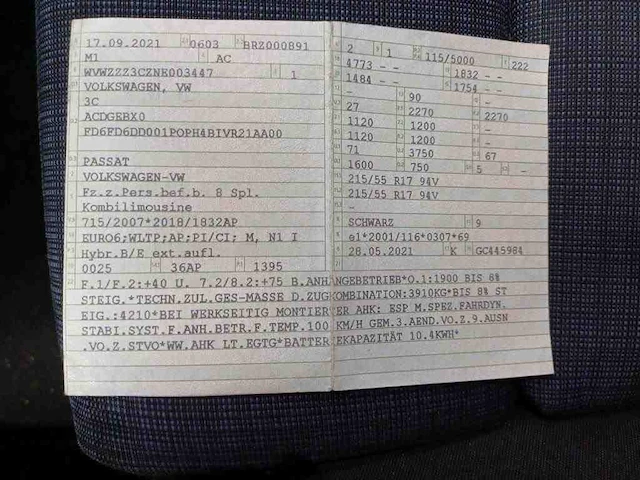 17.09.2021 0603 BRZ000891
M1 AC
WVWZZZ3CZNE003447 1
VOLKSWAGEN, VW
3C
ACDGEBX0
FD6FD6DD001POPH4BIVR21AA00
PASSAT
VOLKSWAGEN-VW
Fz.z.Pers.bef.b. 8 Spl.
Kombilimousine
715/2007*2018/1832AP
EURO6;WLTP;AP;PI/CI; M, N1 I
Hybr.B/E ext.aufl.
0025 36AP 1395
2 1 115/5000 222
4773 - - 1832 - -
1484 - - 1754 - -
- 90 -
27 2270 2270
1120 1200 -
1120 1200 -
71 3750 67
1600 750 5 -
215/55 R17 94V
215/55 R17 94V
-
SCHWARZ 9
e1*2001/116*0307*69
28.05.2021 K GC445984
F.1/F.2:+40 U. 7.2/8.2:+75 B.ANHANGEBETRIEB*O.1:1900 BIS 8%
STEIG.*TECHN.ZUL.GES-MASSE D.ZUGKOMBINATION:3910KG*BIS 8% ST
EIG.:4210*BEI WERKSEITIG MONTIERTER AHK: ESP M.SPEZ.FAHRDYN.
STABI.SYST.F.ANH.BETR.F.TEMP.100 KM/H GEM.3.AEND.VO.Z.9.AUSN
.VO.Z.STVO*WW.AHK LT.EGTG*BATTERIEKAPAZITÄT 10.4KWH*